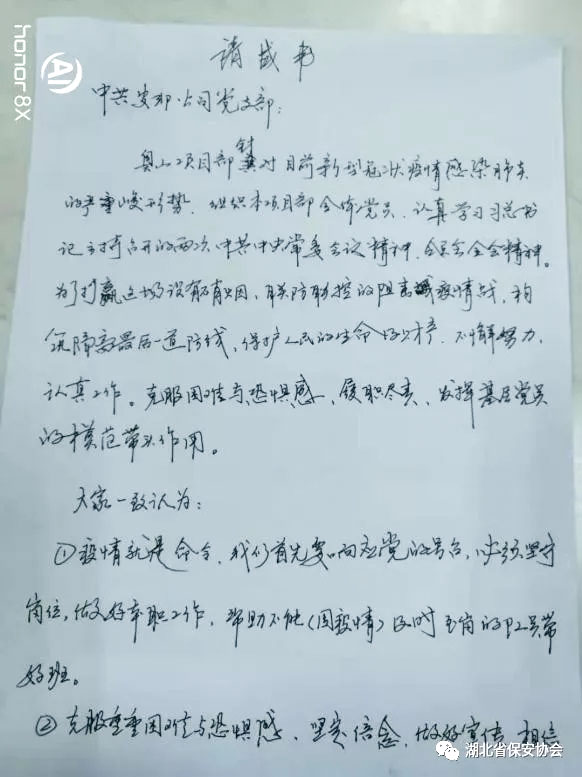 请战书
中共安邦公司党支部:
奥山项目部针对目前新型冠状疫情感染肺炎
的严重峻形势,组织本项目部全体党员,认真学习习总书
记主持召开的两次中共中央常委会议精神,
为了打赢这场没有硝烟,联防联控的阻击疫情战,构
筑隔离最后一道防线,保护人民的生命财产,不懈努力,
认真工作。克服困难与恐惧感,履职尽责,发挥基层党员
的模范带头作用。
大家一致认为:
①疫情就是命令,我们首先要响应党的号召,必须坚守
岗位,做好本职工作,帮助不能(因疫情)及时到岗的队员带
好班。
②克服重重困难与恐惧感,坚定信念,做好宣传,相信
honor 8X
AI
湖北省保安协会